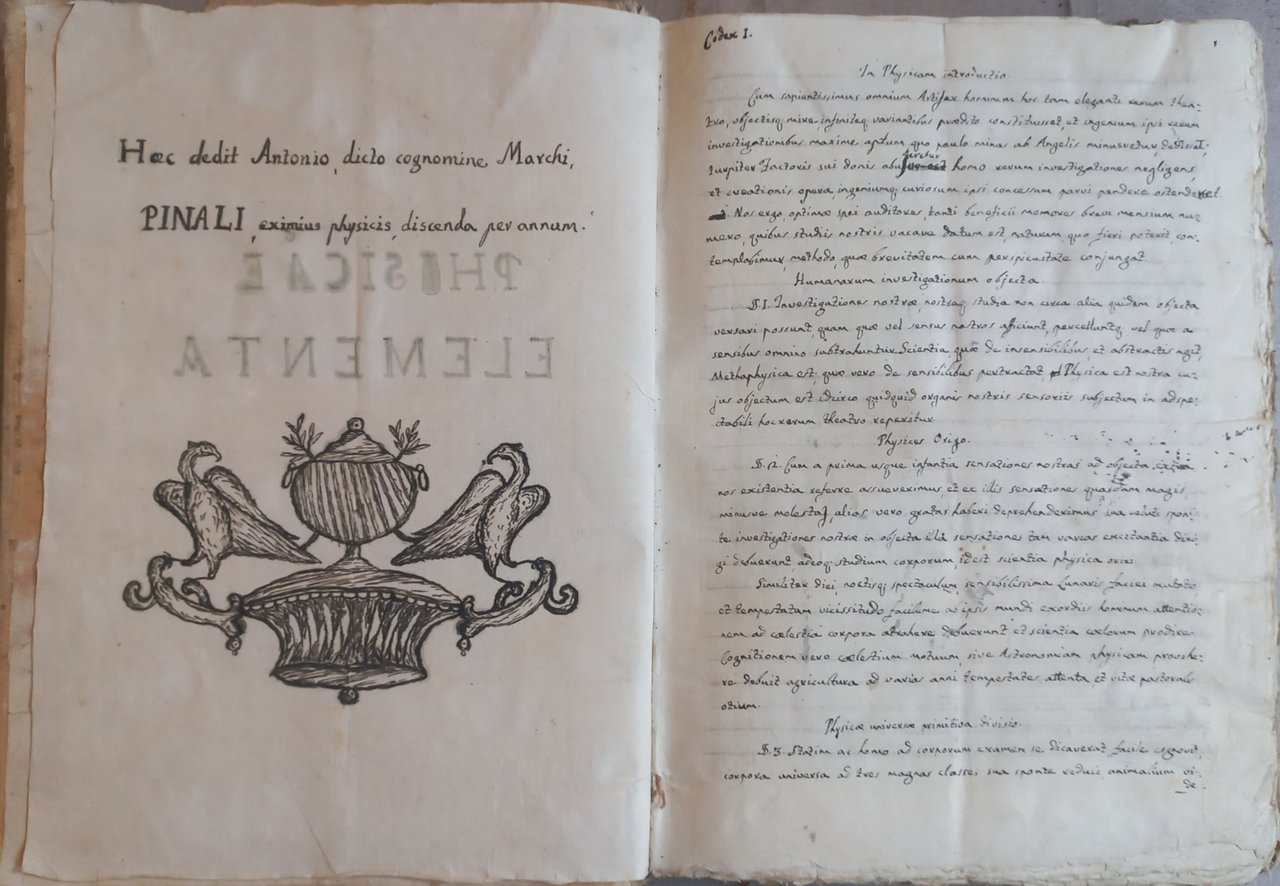 Hæc dedit Antonio, dicto cognomine, Marchi,
PINALI, eximius physicis, discenda per annum.
PHISICAE
ELEMENTA
Codex I.
1
In Physicam introductio.
Cum sapientissimus omnium Artifex hominem hoc tam eleganti rerum thea-
tro, objectisq; mire, infiniteq; variantibus prædito constituisset, et ingenium ipsi rerum
investigationibus maxime aptum, quo paulo minus ab Angelis minueretur, dedisset;
turpiter Factoris sui donis homo rerum investigationes negligens,
et creationis opera, ingeniumq; curiosum ipsi concessum parvi pendere ostenderet.
Nos ergo, optimæ spei auditores, tanti beneficii memores brevi mensium nu-
mero, quibus studiis nostris vacare datum est, naturam, quo fieri poterit, con-
templabimur, methodo, quæ brevitatem cum perspicuitate conjungat
Humanarum investigationum objecta.
§. 1. Investigationes nostræ, nostraq; studia non circa alia quidem objecta
versari possunt, quam quæ vel sensus nostros aficiunt, percelluntq; vel quæ a
sensibus omnino subtrahuntur. Scientia quæ de insensibilibus et abstractis agit,
Methaphysica est, quæ vero de sensibilibus pertractat, Physica est nostra, cu-
jus objectum est idcirco quidquid organis nostris sensoriis subjectum in adspe-
ctabili hoc rerum theatro reperitur
Physices Origo.
§. 2. Cum a prima usque infantia sensationes nostras ad objecta, extra
nos existentia referre assueverimus, et ex illis sensationes quasdam magis
minusve molestas, alias vero gratas haberi deprehenderimus sua veluti spon-
te investigationes nostræ in objecta illa sensationes tam varias excitantia diri-
gi debuerunt, adeoq; studium corporum, id est scientia physica oriri.
Similiter diei, noctisq; spectaculum, sensibilissima Lunaris faciei mutatio
et tempestatum vicissitudo facillime ab ipsis mundi exordiis hominum attentio-
nem ad cælestia corpora attrahere debuerunt et scientia cælorum prodire.
Cognitionem vero cælestium motuum, sive Astronomiam physicam provehe-
re debuit agricultura ad varias anni tempestates attenta et vitæ pastoralis
otium.
Physicæ universæ primitiva divisio.
§. 3. Statim ac homo ad corporum examen se dicaverat, facile cognovit,
corpora universa ad tres magnas classes sua sponte reduci, animalium vi-
de-